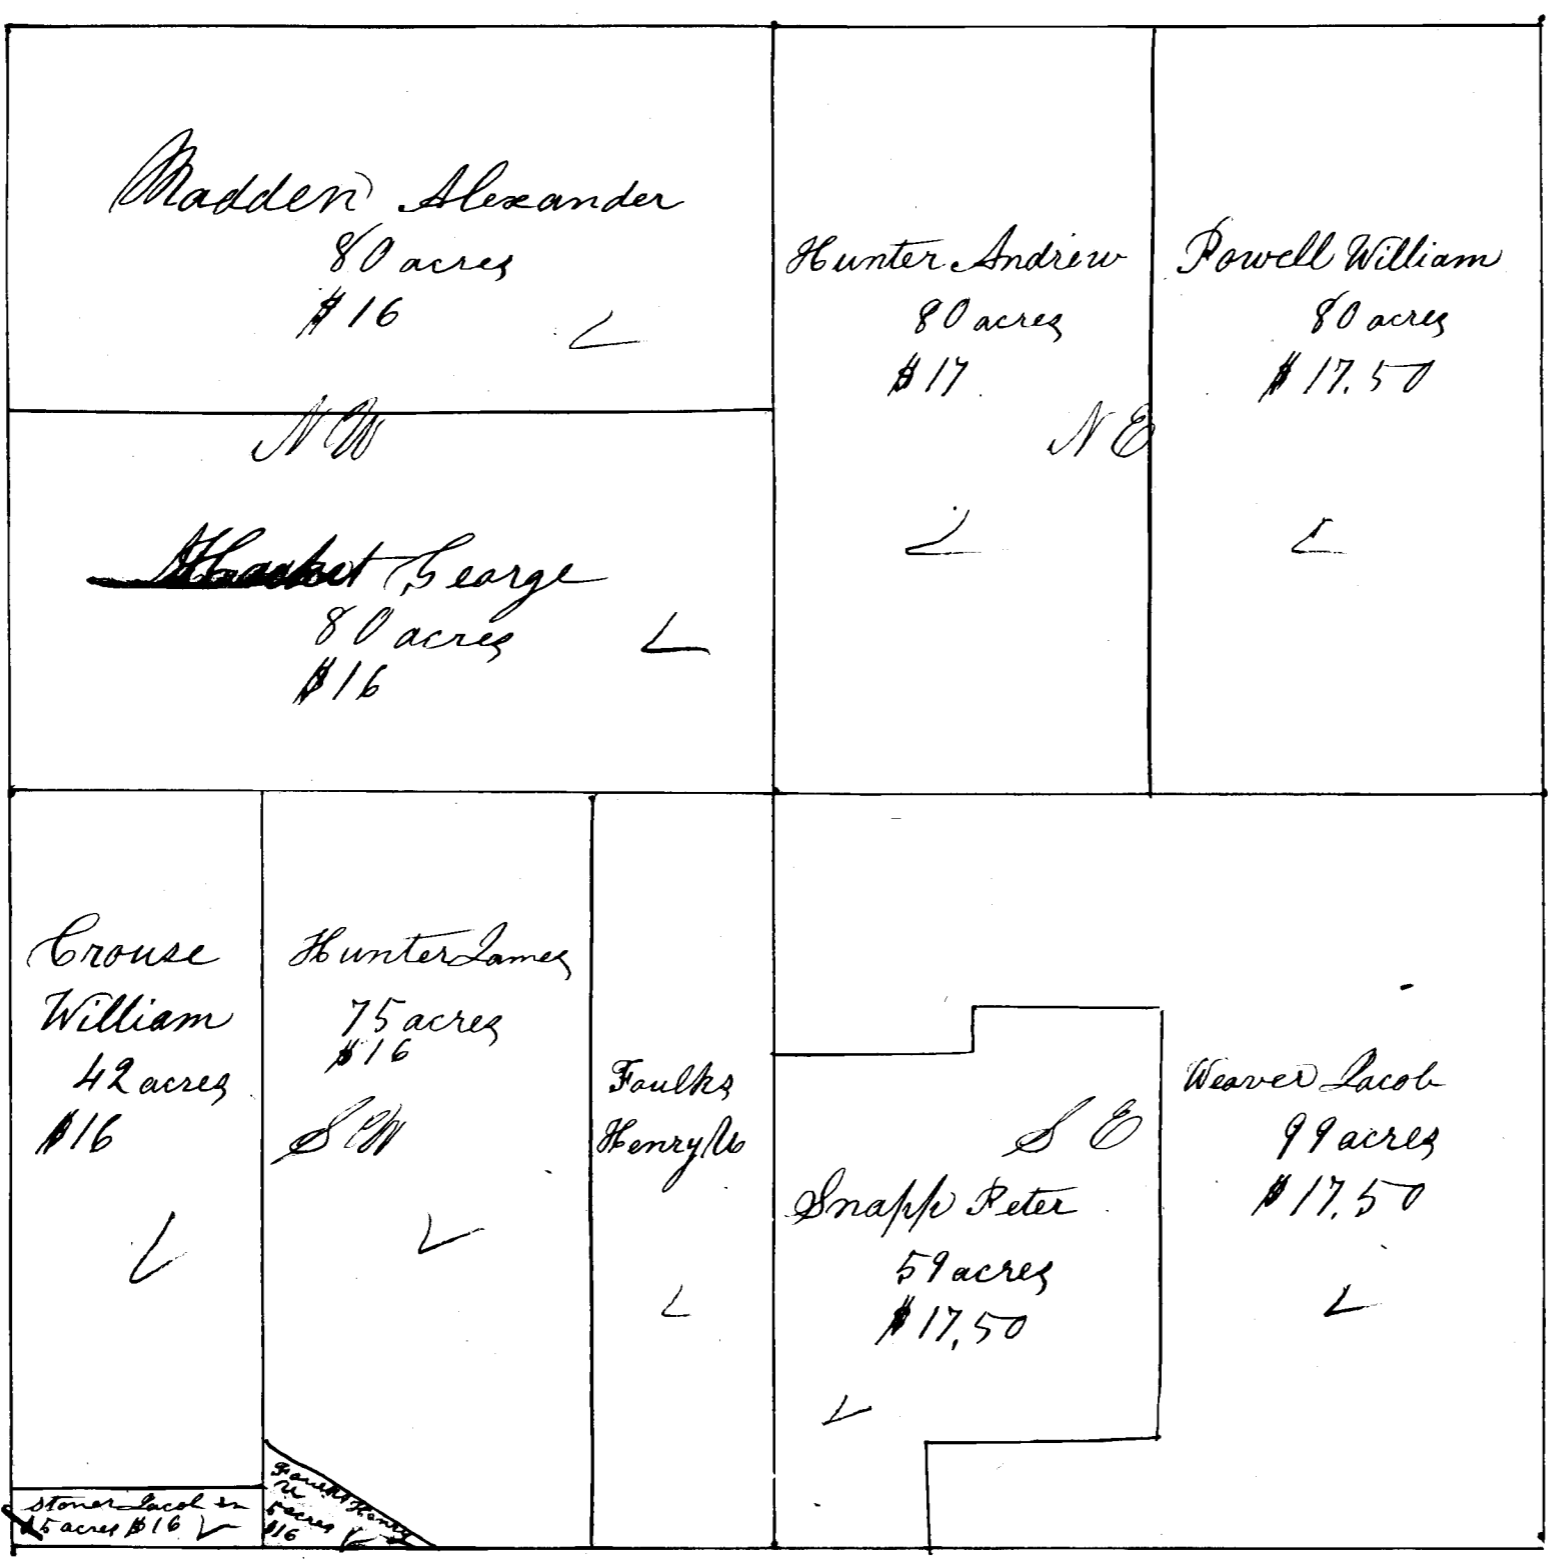 Madden Alexander
80 acres
$16
NW
Hacket George
80 acres
$16
Hunter Andrew
80 acres
$17
NE
Powell William
80 acres
$17.50
Crouse
William
42 acres
$16
Hunter James
75 acres
$16
SW
Faulks
Henry U
SE
Snapp Peter
59 acres
$17.50
Weaver Jacob
99 acres
$17.50
Stoner Jacob Sn
5 acres $16
Faulks Henry
U
5 acres
$16